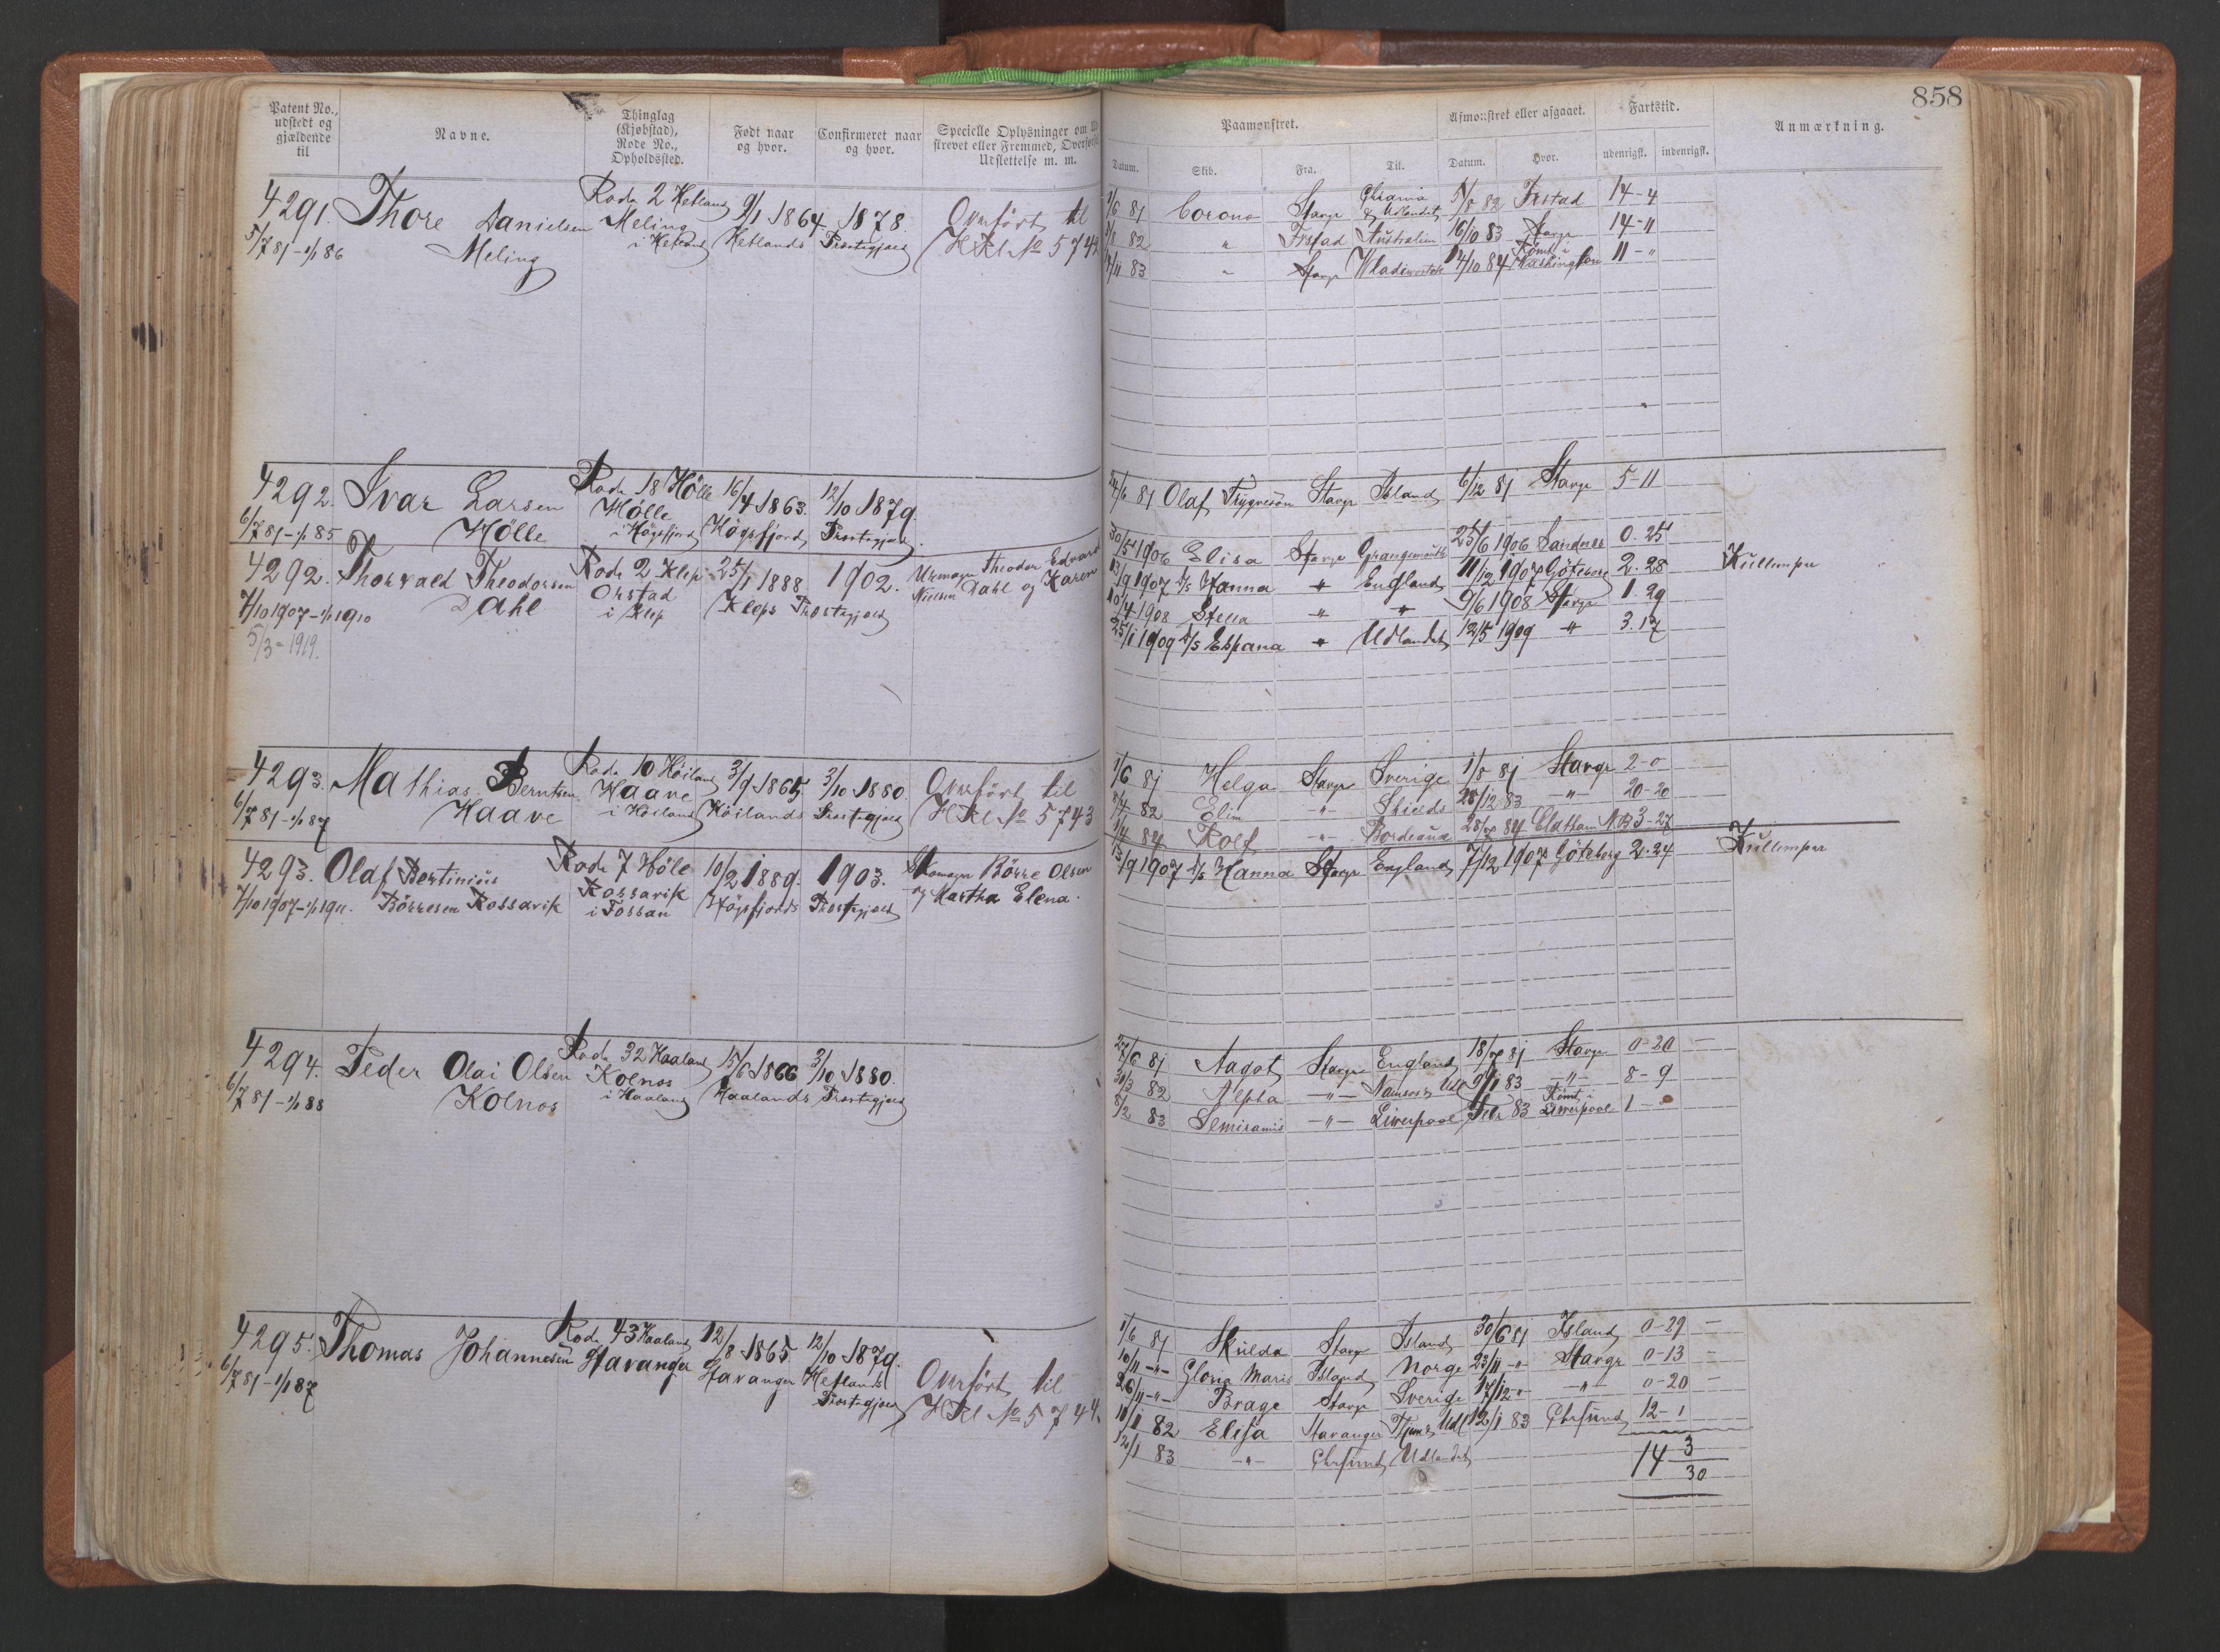 858
Patent No., udstedt og gjældende til
Navne.
Thinglag (Kjøbstad), Rode No., Opholdssted.
Født naar og hvor.
Confirmeret naar og hvor.
Specielle Oplysninger om
strevet eller Fremmed,
Udslettelse m. m.
Paamønstret.
Afmønstret eller afgaaet.
Fartstid.
Anmærkning.
Datum.
Skib.
Fra.
Til.
Datum.
Hvor.
udenrigsk.
indenrigsk.
4291. Thore Danielsen Rode 2 Hetland 9/1 1864. 1878. Overført til
5/7 81 - 1/1 86 Meling Meling i Hetland Hetlands Præstegjeld HKl No 574
81 Corona Stavgr Chrania & Udlandet 82 Frstad 14-4
82 " Frstad Australien 16/10 83 Stavgr 14-11
83 " Stavgr Wladiwostok 14/10 84 Rømt i Washington 11-"
4292. Ivar Larsen Rode 18 Hölle 16/4 1863. 12/10 1879.
6/7 81 - 1/1 85 Hölle Hölle i Högsfjord Högsfjord Præstegjeld.
24/6 81 Olaf Trygveson Stavgr Island 6/12 81 Stavgr 5-11
4292. Thorvald Theodorsen Rode 2 Klep 25/1 1888 1902. Urmager Theodor Edvard
7/10 1907 - 1/1 1910 Dahl Orstad i Klep Kleps Præstegjeld Nielsen Dahl og Karen
5/3 - 1919.
30/5 1906 Elisa Stavgr Grangemouth 25/6 1906 Sandnes 0.25
13/9 1907 D/S Hanna " England 11/12 1907 Göteborg 2.28 Kullempar
10/4 1908 Stella " " 9/6 1908 Stavgr 1.29
25/1 1909 D/S Espana " Udlandet 12/5 1909 " 3.17
4293. Mathias Berntsen Rode 10 Höiland 3/9 1865 3/10 1880. Overført til
6/7 81 - 1/1 87 Haave Haave i Höiland Höilands Præstegjeld HKl No 5743
1/6 81 Helga Stavgr Sverige 1/8 81 Stavgr 2-0
82 Elim -"- Shields 28/12 83 -"- 20-20
84 Rolf -"- Bordeaux 28/7 84 Chatham NB 3-27
4293. Olaf Bertinius Rode 7 Höle 10/2 1889. 1903. Skomager Börre Olsen
7/10 1907 - 1/1 1911. Börresen Rossavik Rossavik i Fossan Högsfjords Præstegjeld og Martha Elena.
13/9 1907 D/S Hanna Stavgr England 7/12 1907 Göteborg 2.24 Kullempar
4294. Peder Olai Olsen Rode 32 Haaland 15/6 1866 3/10 1880.
6/7 81 - 1/1 88 Kolnos Kolnos i Haaland Haalands Præstegjeld
27/6 81 Aagot Stavgr England 18/7 81 Stavgr 0-20 —
30/3 82 Alpha -"- Namsos & Udl 9/1 83 -"- 8-9
5/2 83 Semiramis -"- Liverpool Febr 83 Rømt i Liverpool 1-0
4295. Thomas Johannesen Rode 43 Haaland 12/8 1865 12/10 1879. Overført til
6/7 81 - 1/1 87 Havanger Havanger Hetlands Præstegjeld HKl No 5744.
1/6 81 Skulda Stavgr Island 30/6 81 Island 0-29 —
10/11 -"- Glona Marie Island Norge 23/11 -"- Stavgr 0-13 —
26/11 -"- Brage Stavgr Sverige 17/12 -"- -"- 0-20 —
82 Elisa Stavanger Udl 12/1 83 Chrsund 12-1
12/1 83 -"- Chrsund Udlandet
14 3/30